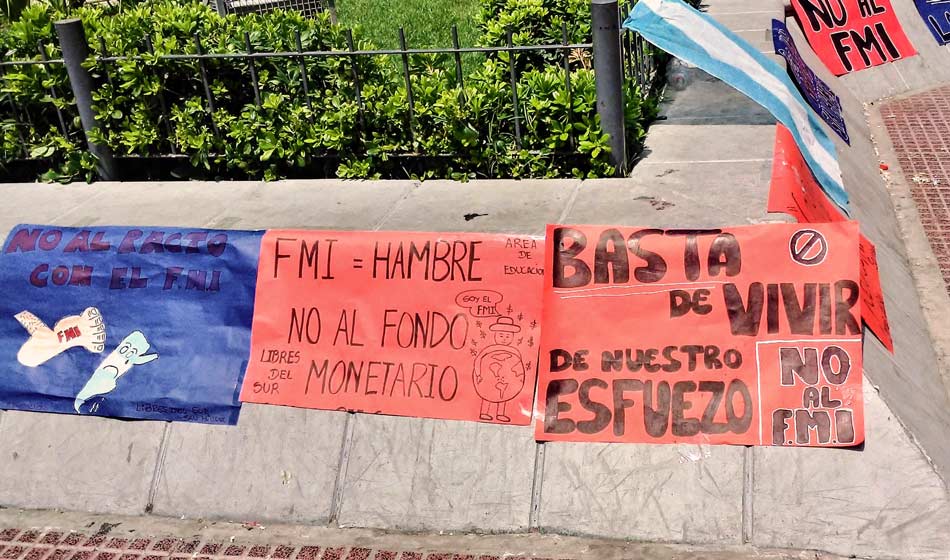 NO AL PACTO
CON EL FMI
FMI
LIBRES DEL SUR
FMI = HAMBRE
AREA
DE
EDUCACION
SOY EL
FMI
NO AL FONDO
MONETARIO
LIBRES
DEL
SUR
BASTA
DE VIVIR
DE NUESTRO
ESFUEZO
NO
AL
F.M.I
NO AL
FMI